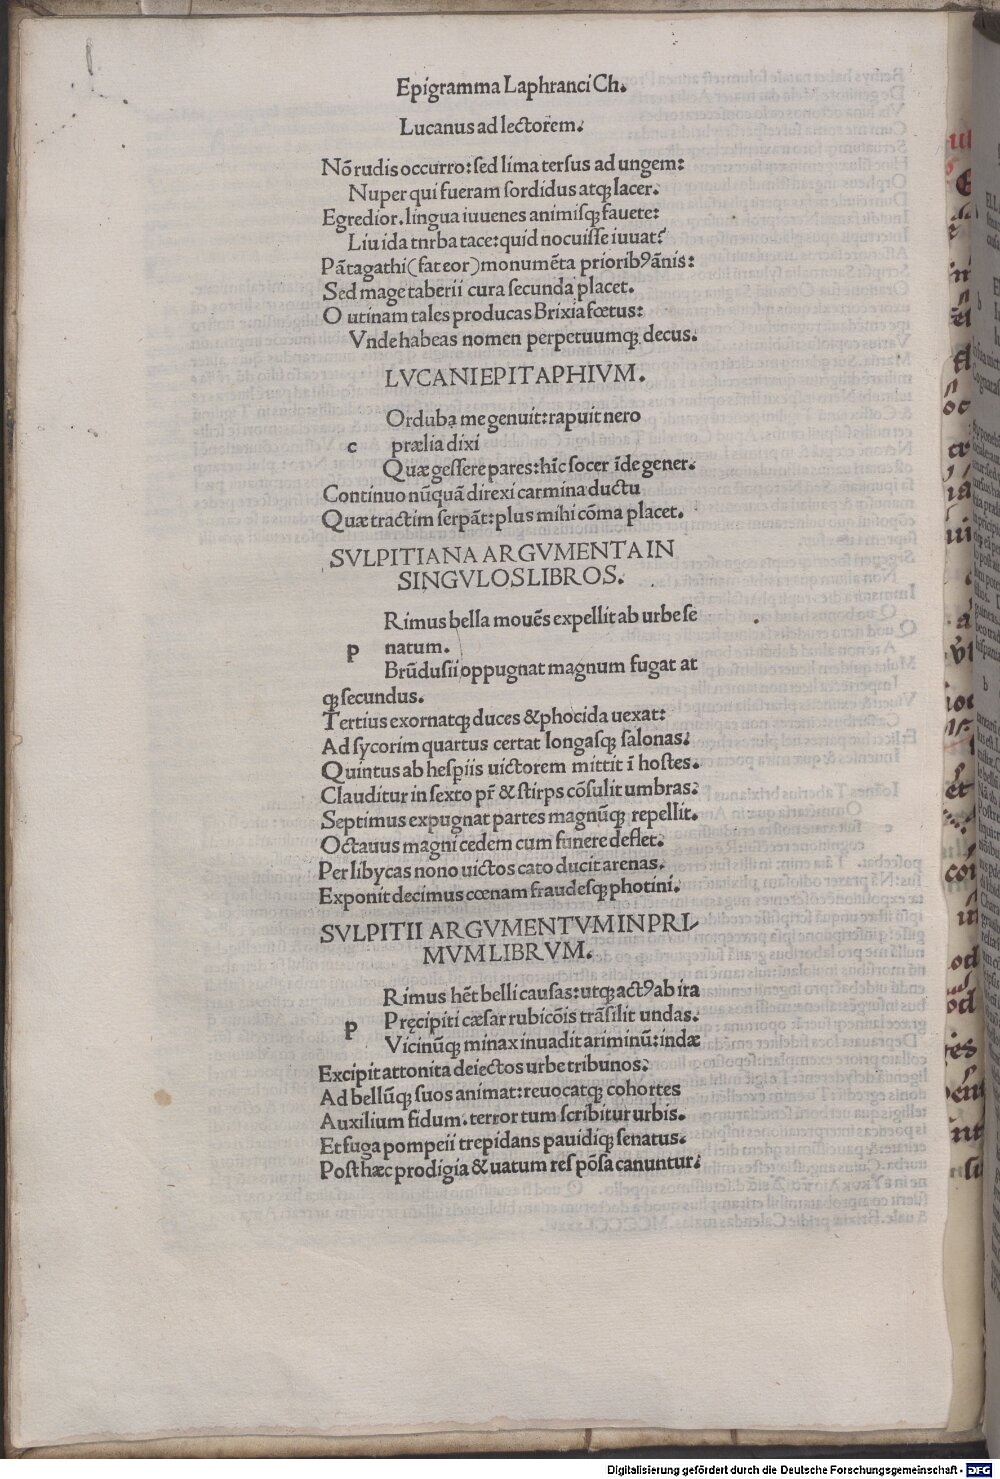 Epigramma Laphranci Ch.
Lucanus ad lectorem.
Nō rudis occurro: sed lima tersus ad ungem:
Nuper qui fueram sordidus atqꝫ lacer.
Egredior. lingua iuuenes animisqꝫ fauete:
Liuida tnrba tace: quid nocuisse iuuat?
Pātagathi (fateor) monumēta priorib⁹ ānis:
Sed mage taberii cura secunda placet.
O utinam tales producas Brixia fœtus:
Vnde habeas nomen perpetuumqꝫ decus.
LVCANI EPITAPHIVM.
Orduba me genuit: rapuit nero
c prælia dixi
Quæ gessere pares: hīc socer īde gener.
Continuo nūquā direxi carmina ductu
Quæ tractim serpāt: plus mihi cōma placet.
SVLPITIANA ARGVMENTA IN
SINGVLOS LIBROS.
Rimus bella mouēs expellit ab urbe se
p natum.
Brūdusii oppugnat magnum fugat at
qꝫ secundus.
Tertius exornatqꝫ duces & phocida uexat:
Ad sycorim quartus certat longasqꝫ salonas.
Quintus ab hesꝑiis uictorem mittit ī hostes.
Clauditur in sexto pr̄ & stirps cōsulit umbras.
Septimus expugnat partes magnūqꝫ repellit.
Octauus magni cedem cum funere deflet.
Per libycas nono uictos cato ducit arenas.
Exponit decimus cœnam fraudesqꝫ photini.
SVLPITII ARGVMENTVM IN PRI-
MVM LIBRVM.
Rimus hēt belli causas: utqꝫ act⁹ ab ira
p Pręcipiti cæsar rubicōis trāsilit undas.
Vicinūqꝫ minax inuadit ariminū: indæ
Excipit attonita deiectos urbe tribunos.
Ad bellūqꝫ suos animat: reuocatqꝫ cohortes
Auxilium fidum. terror tum scribitur urbis.
Et fuga pompeii trepidans pauidiqꝫ senatus.
Post hæc prodigia & uatum respōsa canuntur.
Digitalisierung gefördert durch die Deutsche Forschungsgemeinschaft - DFG